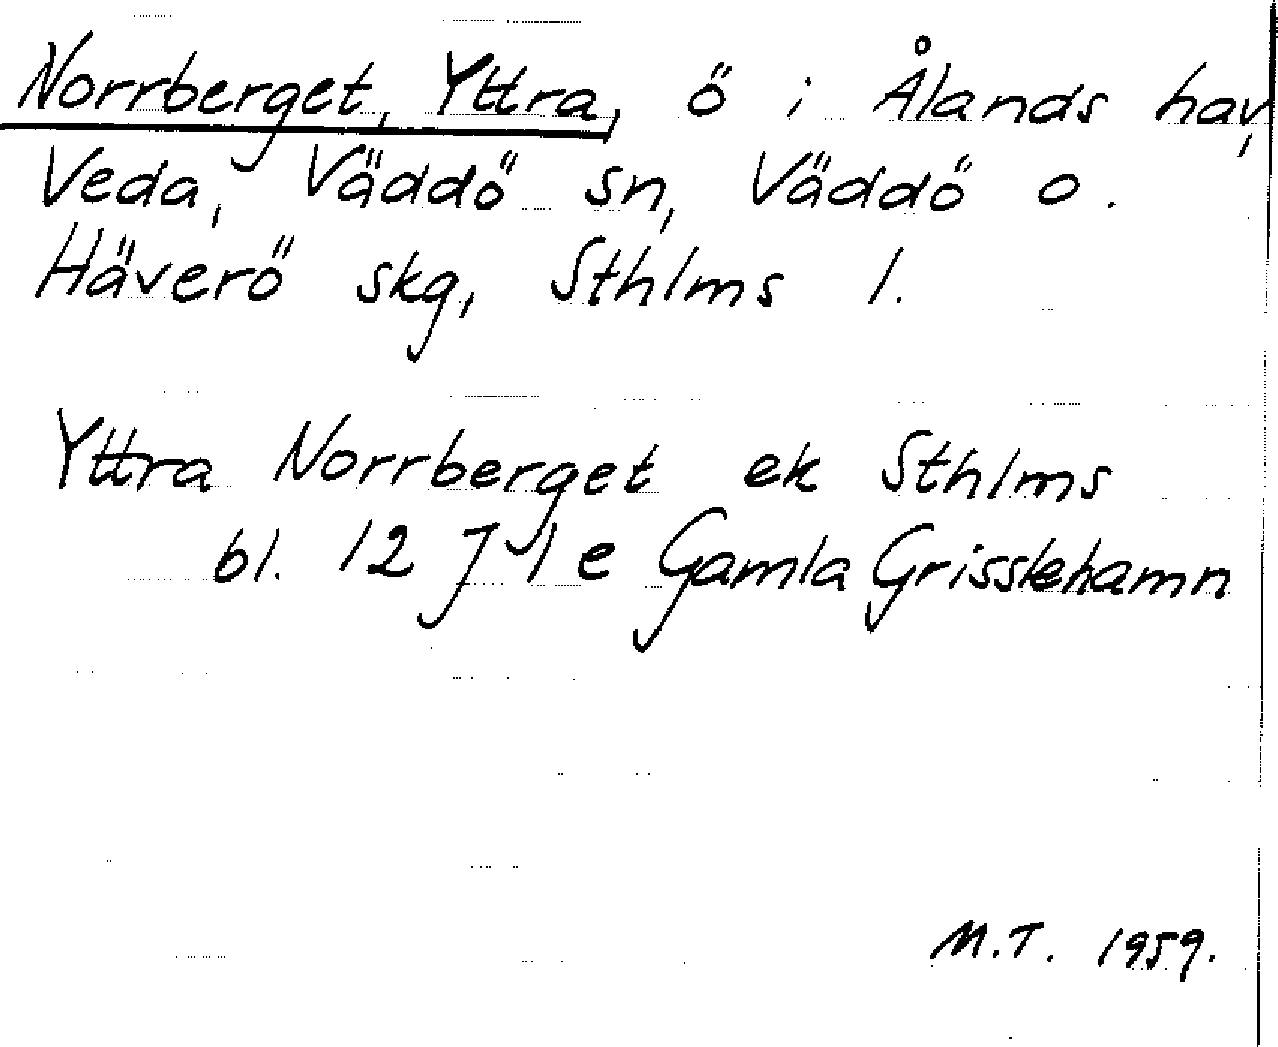 Norrberget, Yttra, ö i Ålands hav,
Veda, Väddö sn, Väddö o.
Häverö skg, Sthlms l.
Yttra Norrberget ek Sthlms
bl. 12 J 1 e Gamla Grisslehamn
M.T. 1959.